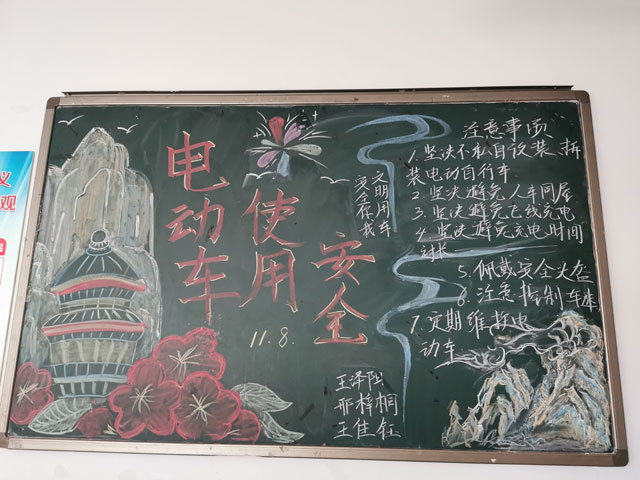 电动车
使用
安全
11.8.
文明用车
安全伴我
注意事项
1.坚决不私自改装、拆
装电动自行车
2.坚决避免人车同屋
3.坚决避免飞线充电
4.坚决避免充电时间
过长
5.佩戴安全头盔
6.注意控制车速
7.定期维护电
动车
王泽阳
邢梓桐
王佳钰
义
观